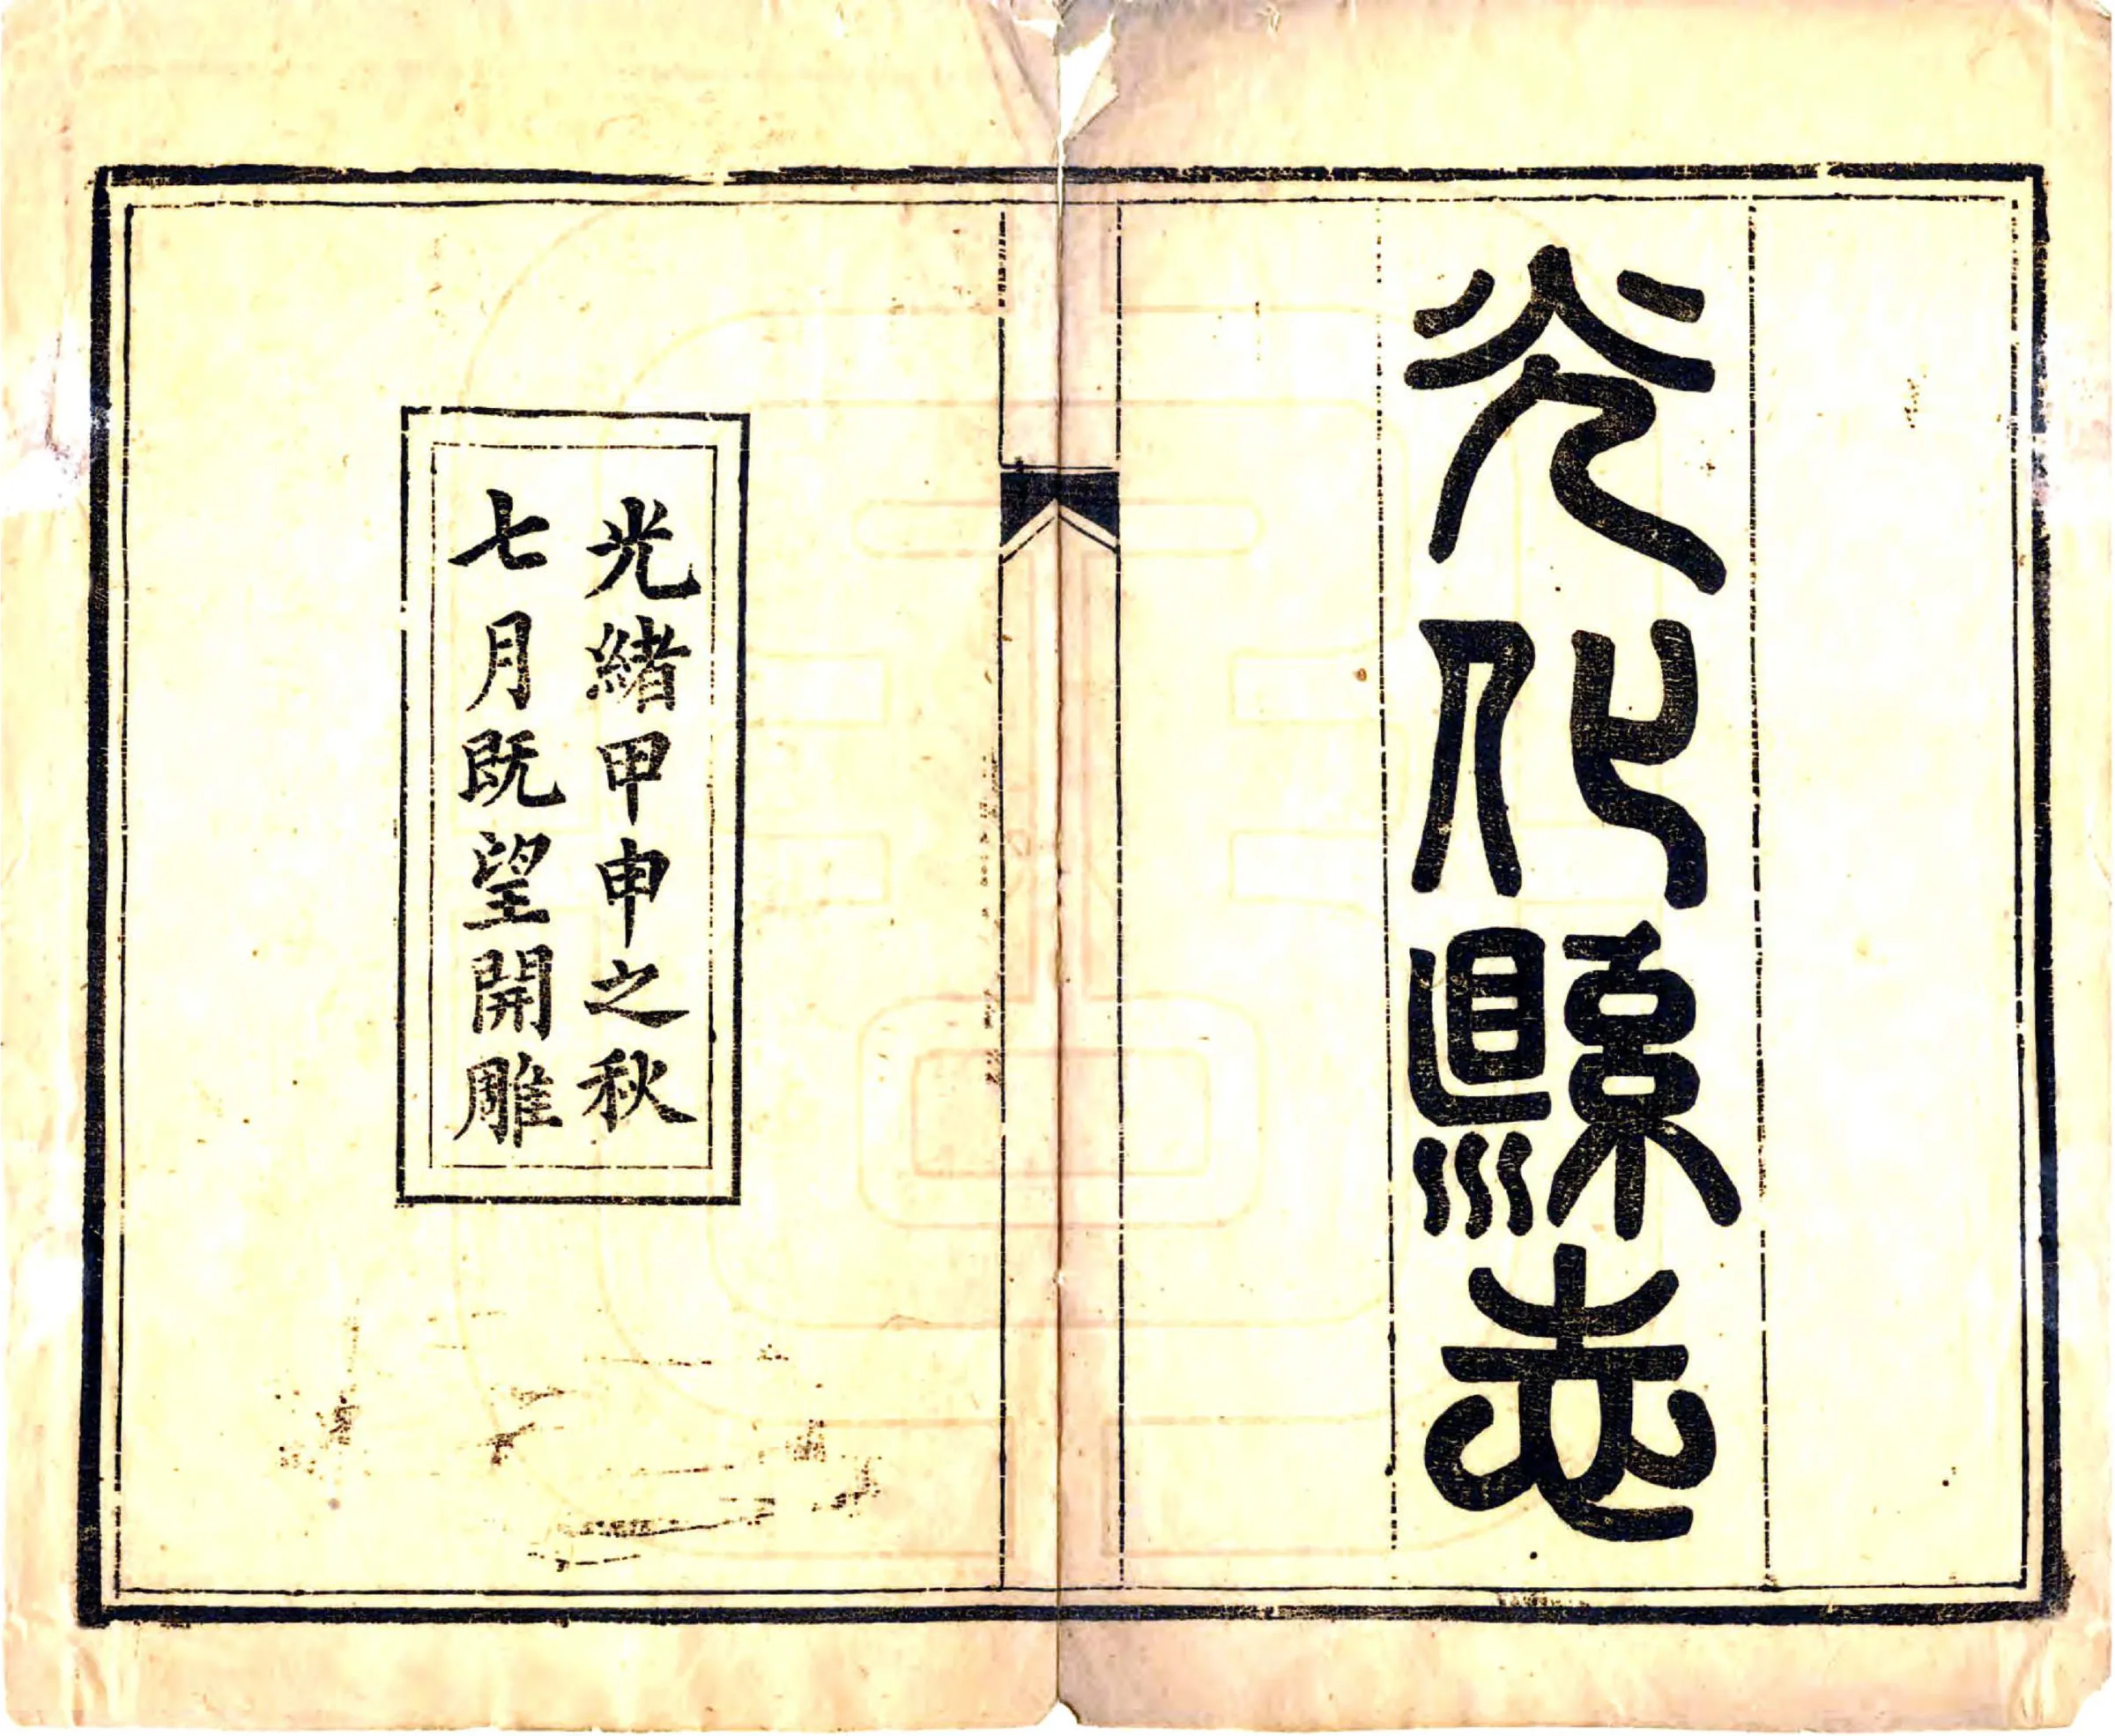 光化縣志
光緒甲申之秋
七月既望開雕